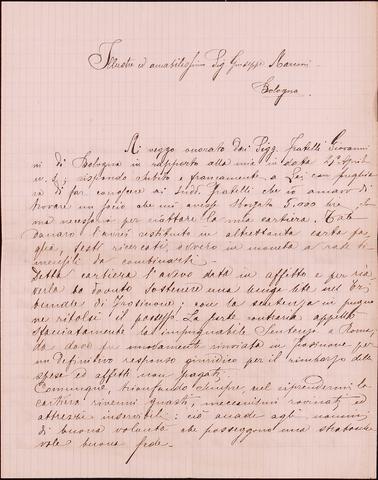 Illustre ed amabilissimo Sig Giuseppe
Bologna.
Mi veggo onorato dai Sigg. fratelli Giovanni
ni di Bologna in rapporto alla mia in data 4 Aprile
rispondo subito e francamente a Lei con preghiera
di far conoscere ai sudd. fratelli che io amavo di
trovare un socio che mi avesse sborzata 5.000 lire
ma nessuno per riattare la mia cartiera. Cotal
danaro l'avrei restituito in altrettanta carta pa
glia, testi ricercati, ovvero in moneta a rate
mensili da combinarsi.
Detta cartiera l'avevo data in affitto e per ria
verla ho dovuto sostenere una lunga lite nel Tri
bunale di Frosinone; con la sentenza in pugno
ne ritolsi il possesso. La parte contraria appellò
sfacciatamente la Sentenza a Roma,
da dove fu rinviata in Frosinone per
un definitivo responso giuridico per il rimborso delle
spese ed affitti non pagati.
Comunque, trionfando sempre, nel riprendermi la
cartiera rinvenni guasti, meccanismi rovinati ed
attrezzi inservibili: ciò accade agli uomini
di buona volontà che posseggono una
vole buona fede.